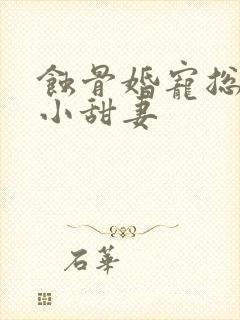 蝕骨婚寵总
小甜妻
石華